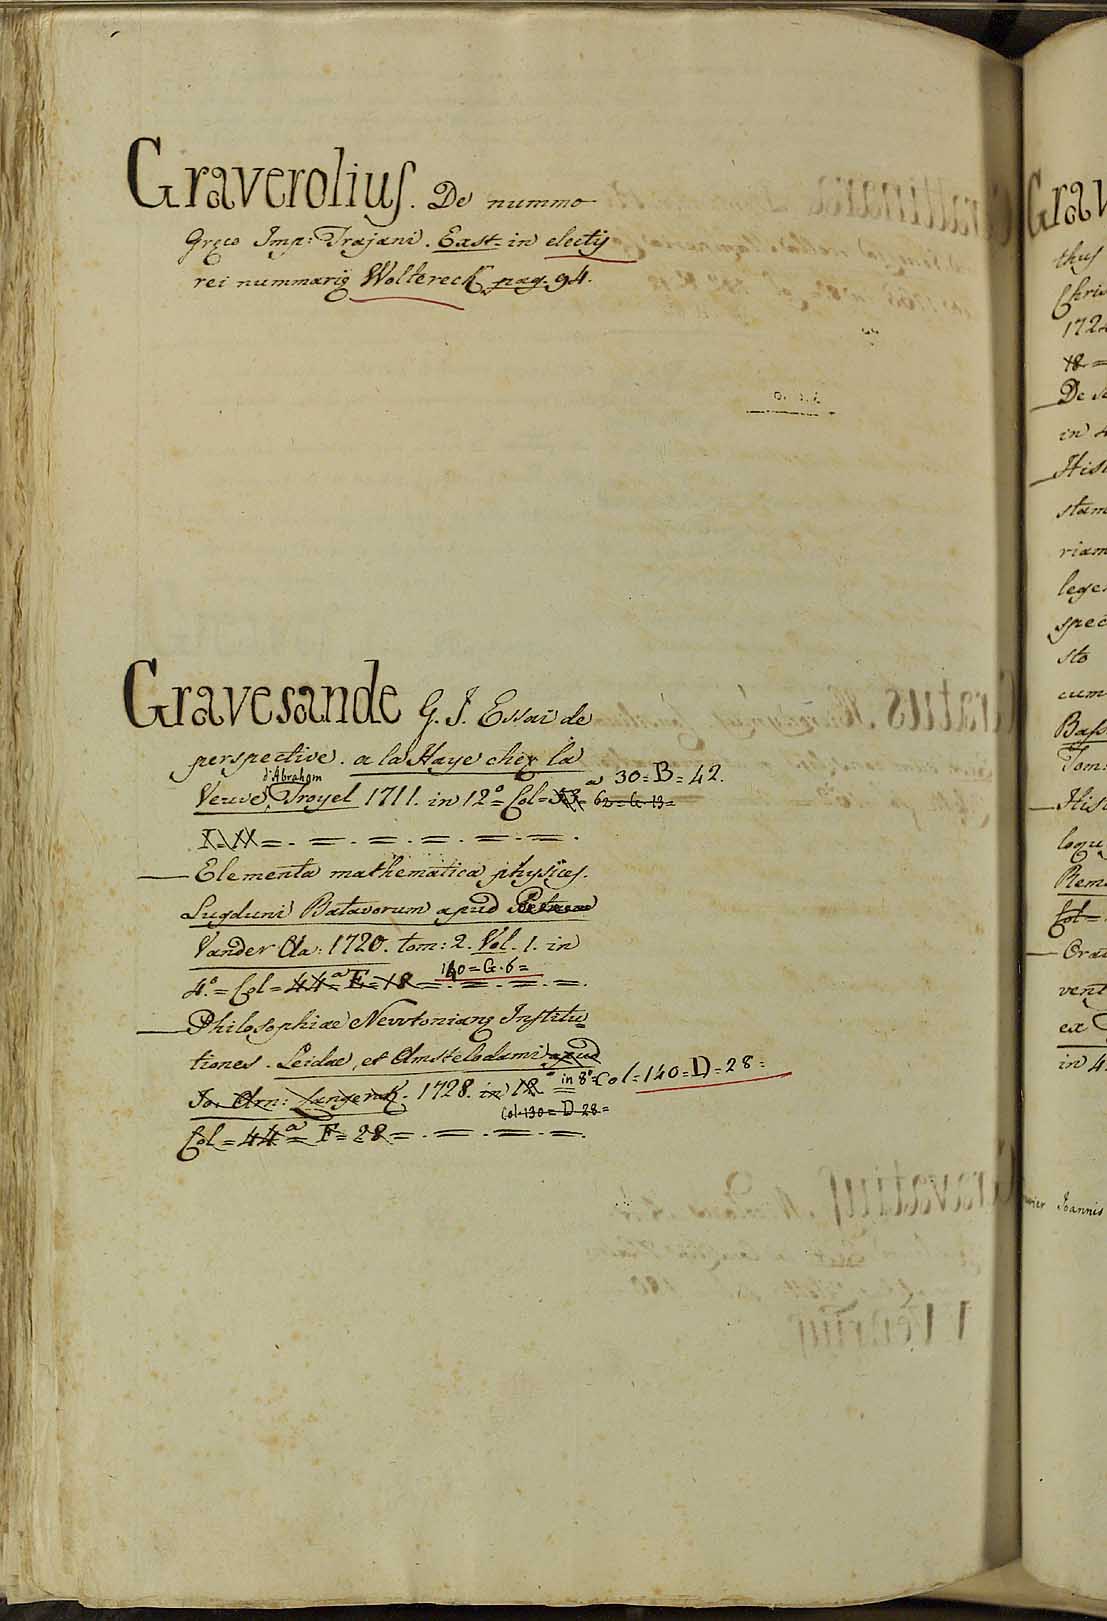 Graverolius. De nummo
Gręco Imp: Trajani. Exst. in electis
rei nummarię Woltereck pag. 94.
Gravesande G. J. Essai de
perspective. a la Haye chez la
d'Abraham
Veuve Troyel 1711. in 12° Col= a 30=B=42.
62=G=13=
Elementa mathematica physices.
Lugduni Batavorum apud
Vander Aa: 1720. tom: 2. Vol. 1. in
140=G.6=
4.° = Col = 44 a = F = 18
Philosophiae Newtonianę Institu=
tiones. Leidae, et Amstelodami apud
Jo. Arn: Langerak. 1728. in 12° in 8°=Col=140=D=28=
Col=130=D=28=
Col=44 a = F=28=
Grav
thus
Chris
172
18=
De s
in 4
Hist
stam
riam
lege
spec
sto
cum
Bas
Tom:
Hist
loqu
Rem
Col=
Ora
vent
ex
in 4
Joannis